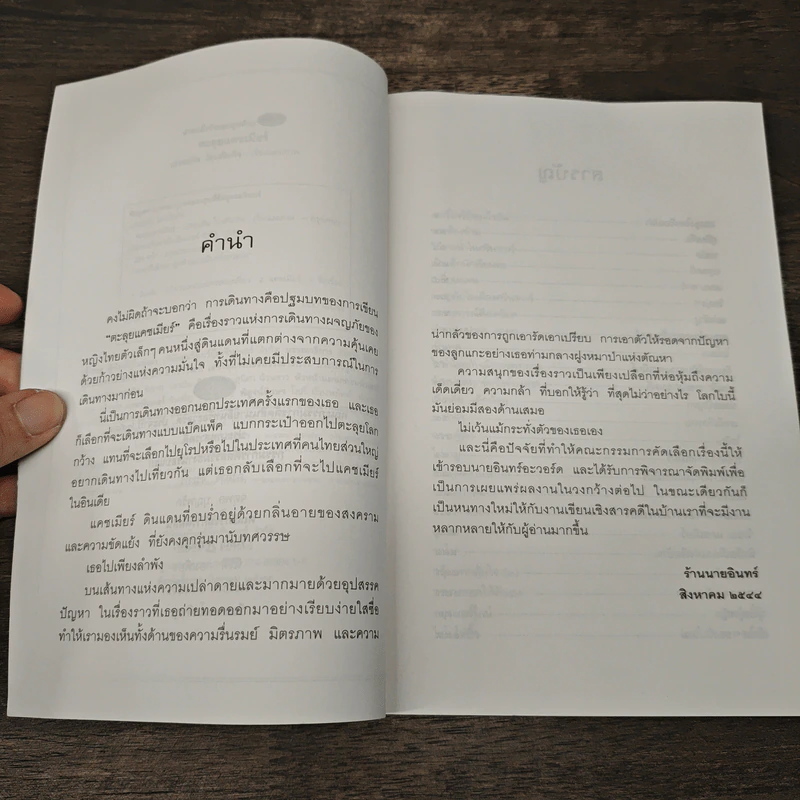 คำนำ
คงไม่ผิดถ้าจะบอกว่า การเดินทางคือปฐมบทของการเขียน
"ตะลุยแคชเมียร์" คือเรื่องราวแห่งการเดินทางผจญภัยของ
หญิงไทยตัวเล็กๆ คนหนึ่งสู่ดินแดนที่แตกต่างจากความคุ้นเคย
ด้วยก้าวย่างแห่งความมั่นใจ ทั้งที่ไม่เคยมีประสบการณ์ในการ
เดินทางมาก่อน
นี่เป็นการเดินทางออกนอกประเทศครั้งแรกของเธอ และเธอ
ก็เลือกที่จะเดินทางแบบแบ๊คแพ็ค แบกกระเป๋าออกไปตะลุยโลก
กว้าง แทนที่จะเลือกไปยุโรปหรือไปในประเทศที่คนไทยส่วนใหญ่
อยากเดินทางไปเที่ยวกัน แต่เธอกลับเลือกที่จะไปแคชเมียร์
ในอินเดีย
แคชเมียร์ ดินแดนที่อบร่ำอยู่ด้วยกลิ่นอายของสงคราม
และความขัดแย้ง ที่ยังคงคุกรุ่นมานับทศวรรษ
เธอไปเพียงลำพัง
บนเส้นทางแห่งความเปล่าดายและมากมายด้วยอุปสรรค
ปัญหา ในเรื่องราวที่เธอถ่ายทอดออกมาอย่างเรียบง่ายใสซื่อ
ทำให้เรามองเห็นทั้งด้านของความรื่นรมย์ มิตรภาพ และความ
น่ากลัวของการถูกเอารัดเอาเปรียบ การเอาตัวให้รอดจากปัญหา
ของลูกแกะอย่างเธอท่ามกลางฝูงหมาป่าแห่งตัณหา
ความสนุกของเรื่องราวเป็นเพียงเปลือกที่ห่อหุ้มถึงความ
เด็ดเดี่ยว ความกล้า ที่บอกให้รู้ว่า ที่สุดไม่ว่าอย่างไร โลกใบนี้
มันย่อมมีสองด้านเสมอ
ไม่เว้นแม้กระทั่งตัวของเธอเอง
และนี่คือปัจจัยที่ทำให้คณะกรรมการคัดเลือกเรื่องนี้ให้
เข้ารอบนายอินทร์อะวอร์ด และได้รับการพิจารณาจัดพิมพ์เพื่อ
เป็นการเผยแพร่ผลงานในวงกว้างต่อไป ในขณะเดียวกันก็
เป็นหนทางใหม่ให้กับงานเขียนเชิงสารคดีในบ้านเราที่จะมีงาน
หลากหลายให้กับผู้อ่านมากขึ้น
ร้านนายอินทร์
สิงหาคม ๒๕๔๔